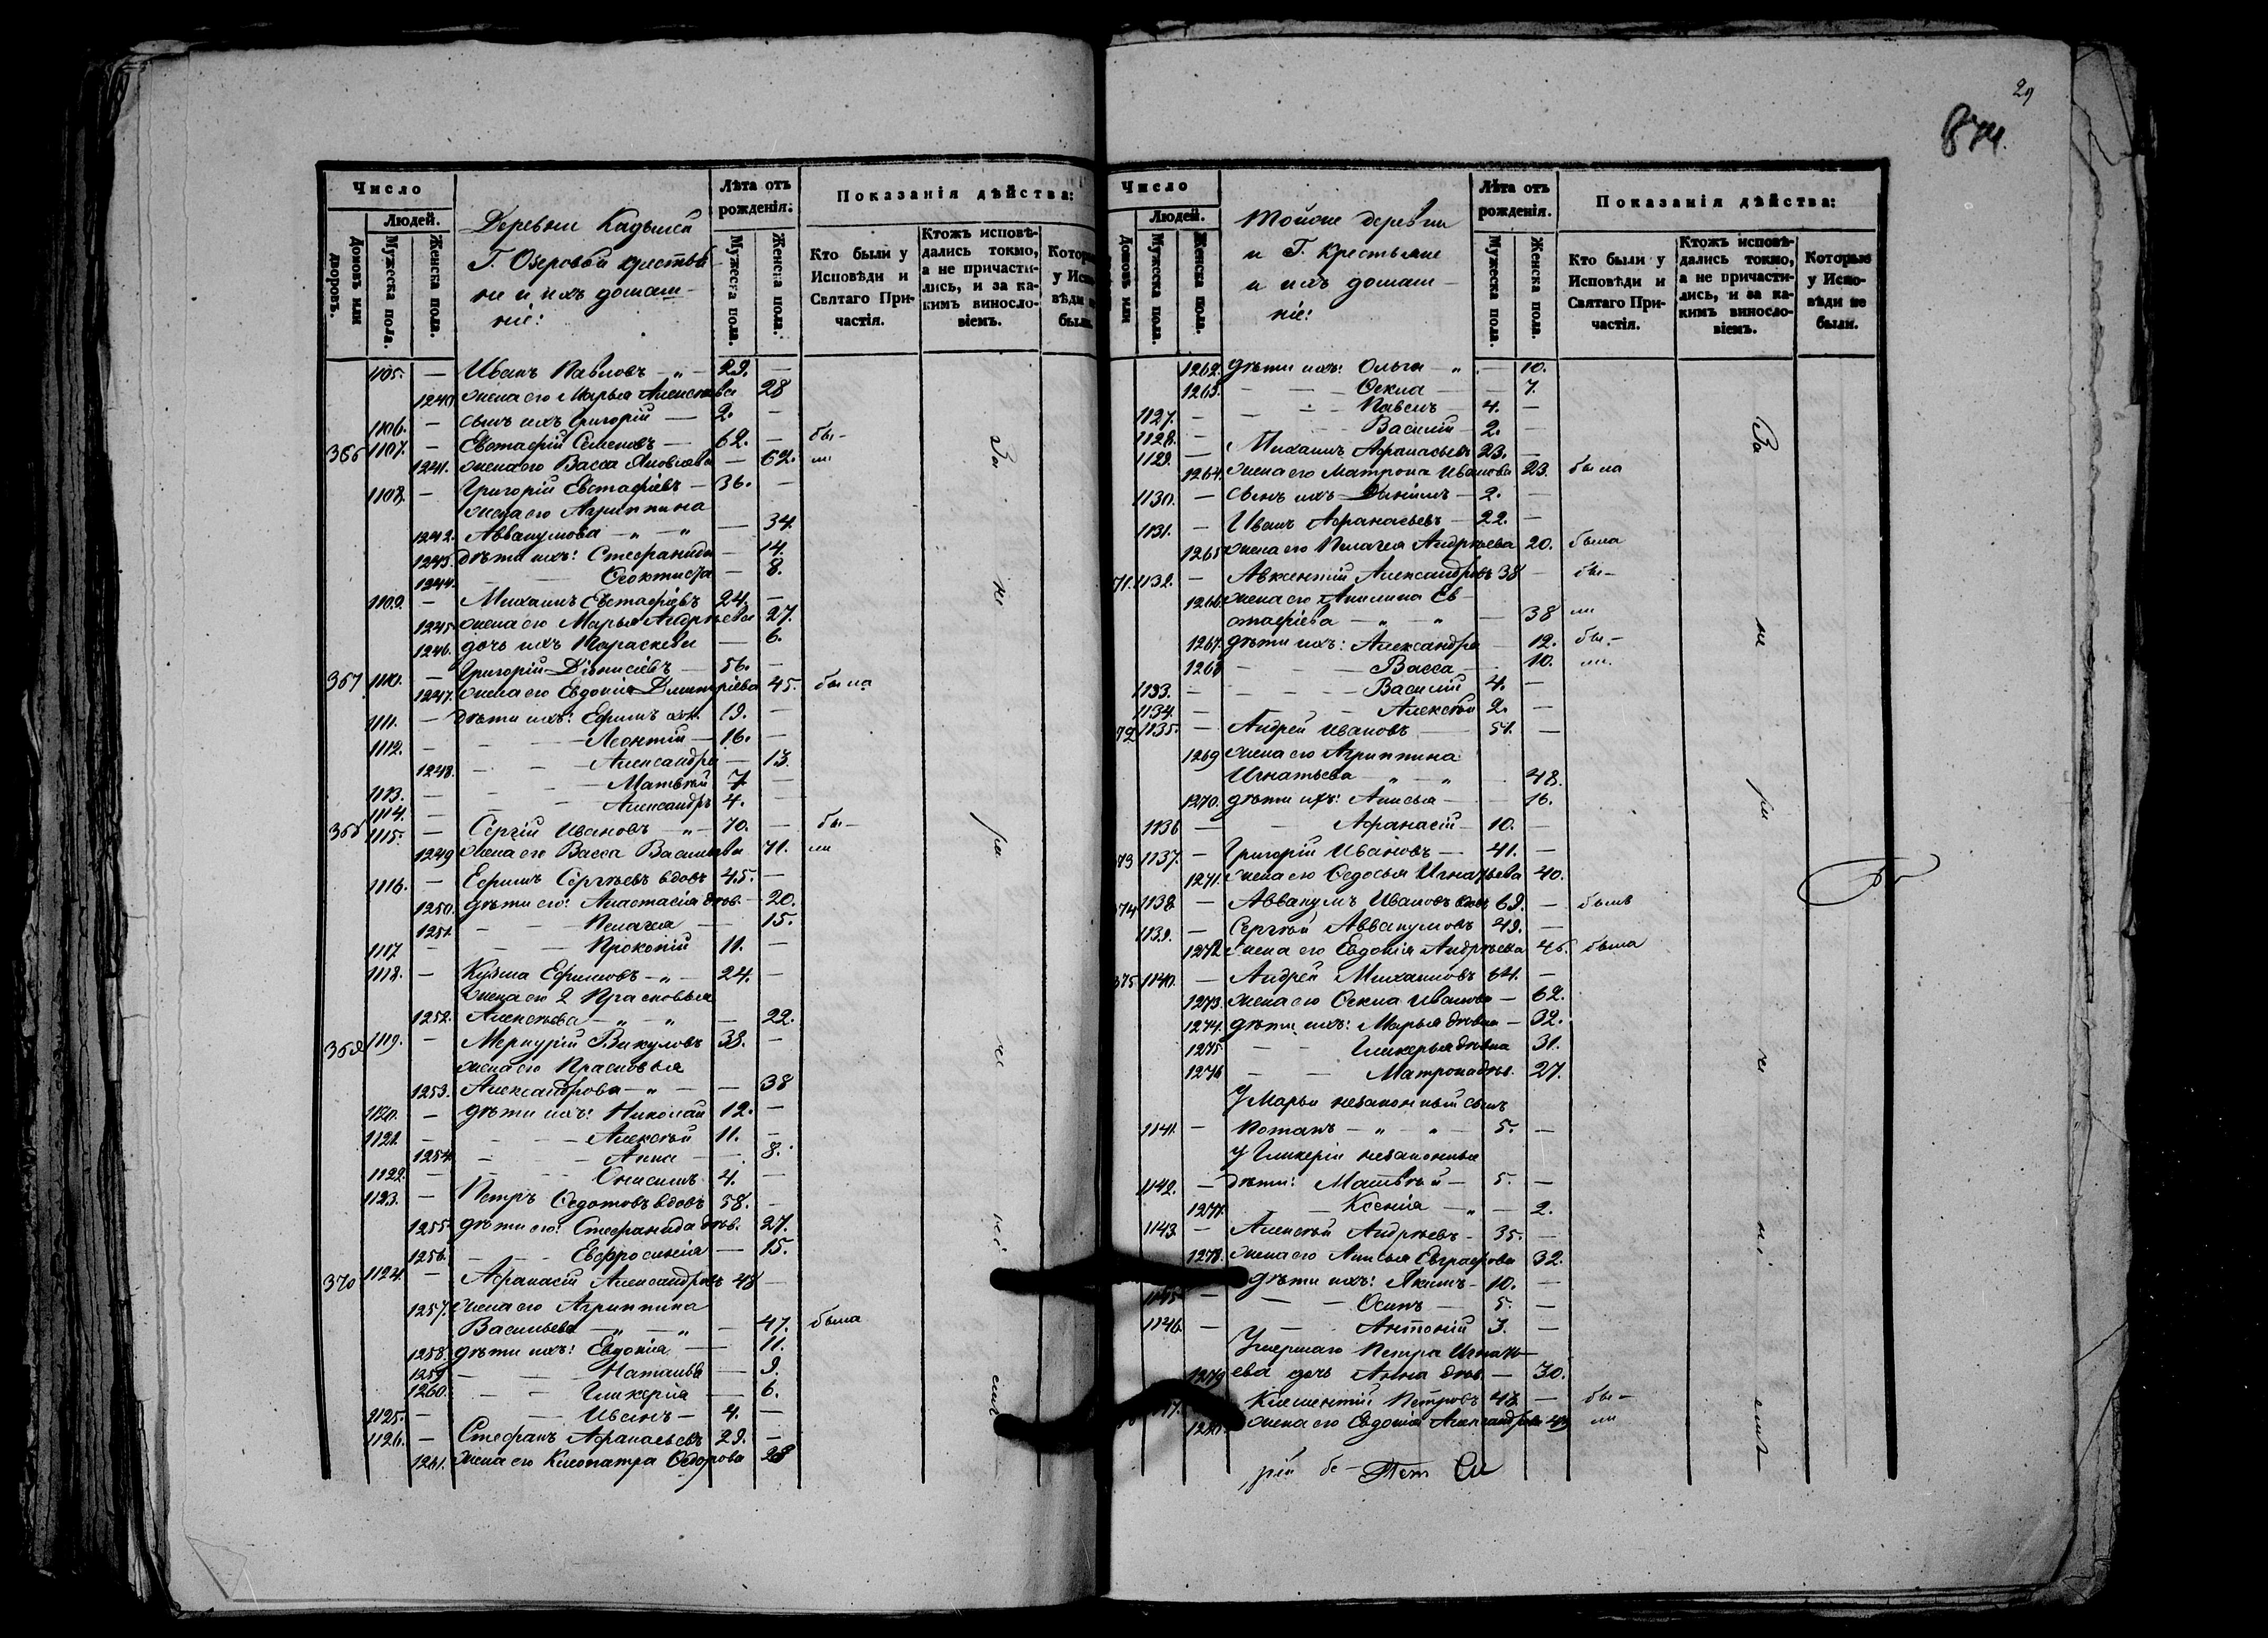 29
874.
Число
Людей.
Домовъ или дворовъ.
Мужеска пола.
Женска пола.
Деревни
Г. Озеровой крестья
не и ихъ домаш-
ніе:
Лѣта отъ рожденія:
Мужеска пола.
Женска пола.
Показанія дѣйства:
Кто были у Исповѣди и Святаго При-частія.
Ктожъ исповѣ-дались токмо, а не причасти-лись, и за ка-кимъ виносло-віемъ.
1105. — Иванъ Павловъ — „ — 29. —
1240. жена его Марья Алексѣева 28
1106. — сынъ ихъ Григорій — 2. —
366 1107. — Евстафій Семеновъ — 62. — бы-
1241. жена его Васса Яковлева — 62. ли
1108. — Григорій Евстафіевъ — 36. —
жена его Агриппина
1242. Аввакумова — „ — „ — 34.
1243. дѣти ихъ: Стефанида — 14.
1244. — — Ѳеоктиста — 8.
1109. — Михаилъ Евстафіевъ 24. —
1245. жена его Марья Андрѣева 27.
1246. дочь ихъ Параскеви — 6.
367 1110. — Григорій Діонисіевъ — 56. —
1247. жена его Евдокія Димитріева 45. была
1111. — дѣти ихъ: Ефимъ 19. —
1112. — — — Леонтій — 16. —
1248. — — Александра — 13.
1113. — — — Матвѣй 7 —
1114. — — Александръ 4. —
368 1115. — Сергій Ивановъ — „ — 70. — бы-
1249 жена его Васса Васильева 71. ли
1116. — Ефимъ Сергѣевъ вдовъ 45. —
1250. дѣти его: Анастасія дѣв. — 20.
1251. — — Пелагея — 15.
1117 — — — Прокопій 11. —
1118. — Кузма Ефимовъ — „ — 24. —
жена его 2 Прасковья
1252. Алексѣева — „ — „ — 22.
369 1119. — Меркурій Викуловъ 38. —
жена его Прасковья
1253. Александрова — „ — — 38
1120. — дѣти ихъ: Николай 12. —
1121. — — — Алексѣй 11. —
1254. — — Анна — 8.
1122. — — — Онисимъ 4. —
1123. — Петръ Ѳедотовъ вдовъ 58. —
1255. дѣти его: Стефанида дѣв. 27.
1256. — — Евфросинія — 15.
370 1124. — Афанасій Александровъ 48 —
1257. жена его Агриппина
Васильева — „ — „ — 47. была
1258. дѣти ихъ: Евдокія — 11.
1259 — — Наталья — 9.
1260. — — Гликерія — 6.
1125. — — Иванъ — 4. —
1126. — Стефанъ Афанасьевъ 29. —
1261. жена его Клеопатра Ѳедорова 28
За
не
ра
че
ніе
емъ
Число
Людей.
Мужеска пола.
Женска пола.
Тойже деревни
и Г. Крестьяне
и ихъ домаш-
ніе:
Лѣта отъ рожденія.
Мужеска пола.
Женска пола.
Показанія дѣйства:
Кто были у Исповѣди и Святаго При-частія.
Ктожъ исповѣ-дались токмо, а не причасти-лись, и за ка-кимъ виносло-віемъ.
Которые у Испо-вѣди не были.
1262. дѣти ихъ: Ольга — „ — 10.
1263. — — Ѳекла — 7.
1127. — — — Павелъ — 4. —
1128. — — Василій — 2. —
1129. — Михаилъ Афанасьевъ 23. —
1264. жена его Матрона Иванова 23. была
1130. — сынъ ихъ — Даніилъ — 2. —
1131. — Иванъ Афанасьевъ — 22. —
1265 жена его Пелагея Андрѣева 20. была
71. 1132. — Авксентій Александровъ 38 — бы-
1266. жена его Акилина Ев-
стафіева — „ — „ — 38 ли
1267. дѣти ихъ: Александра — 12. бы-
1268 — — Васса — 10. ли.
1133. — — — Василій 4. —
1134. — — Алексѣй 2. —
72 1135. — Андрей Ивановъ — 51. —
1269 жена его Агриппина
Игнатьева — „ — „ — 48.
1270. дѣти ихъ: Анисья — 16.
1136 — — Афанасій — 10. —
73 1137. — Григорій Ивановъ — 41. —
1271. жена его Ѳедосья Игнатьева 40.
374 1138. — Аввакумъ Ивановъ вдовъ 69. — былъ
1139. — Сергѣй Аввакумовъ 49. —
1272. жена его Евдокія Андрѣева 46. была
375 1140. — Андрей Михаиловъ 64. —
1273. жена его Ѳекла Иванова — 62.
1274. дѣти ихъ: Марья дѣвка — 32.
1275. — — Гликерья дѣвка 31.
1276 — — Матрона дѣв. 27.
У Марьи незаконный сынъ
1141. — Потапъ — „ — „ — 5. —
У Гликеріи незаконные
1142. — дѣти: Матвѣй — 5. —
1277. — Ксенія — „ — 2.
1143. — Алексѣй Андрѣевъ — 35. —
1278. жена его Анисья Евграфова 32.
дѣти ихъ: Якимъ — 10. —
1145. — — Осипъ — 5. —
1146. — — Антоній 3. —
Умершаго Петра Игнать-
1279 ева дочь Анна дѣв. — 30.
Климентій Петровъ 48 — бы-
жена его Евдокія Александрова 49 ли
За
не
ра
че
ні
емъ